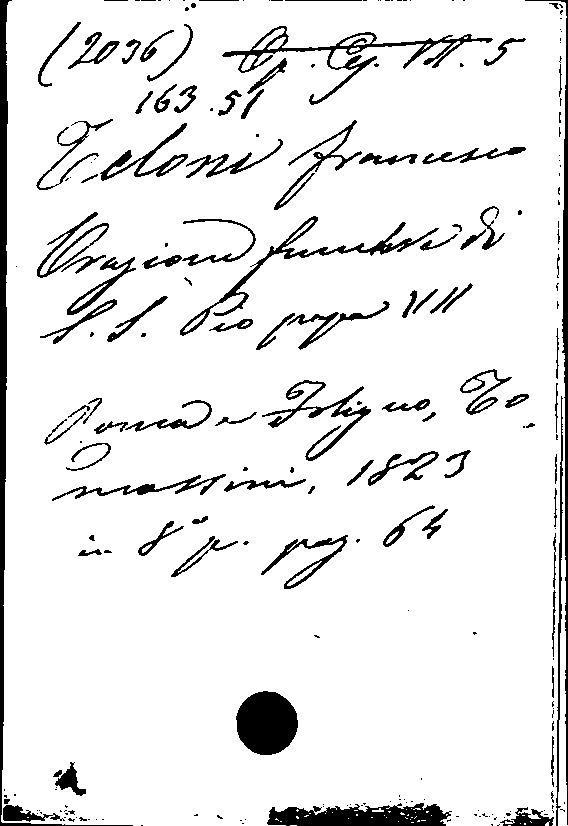 (2036) Op. Cg. VII. 5
163.51
Teloni Francesco
Orazione funebre di
S. S. Pio papa VII
Roma e Foligno, To
massini, 1823
in 8° p. pag. 64